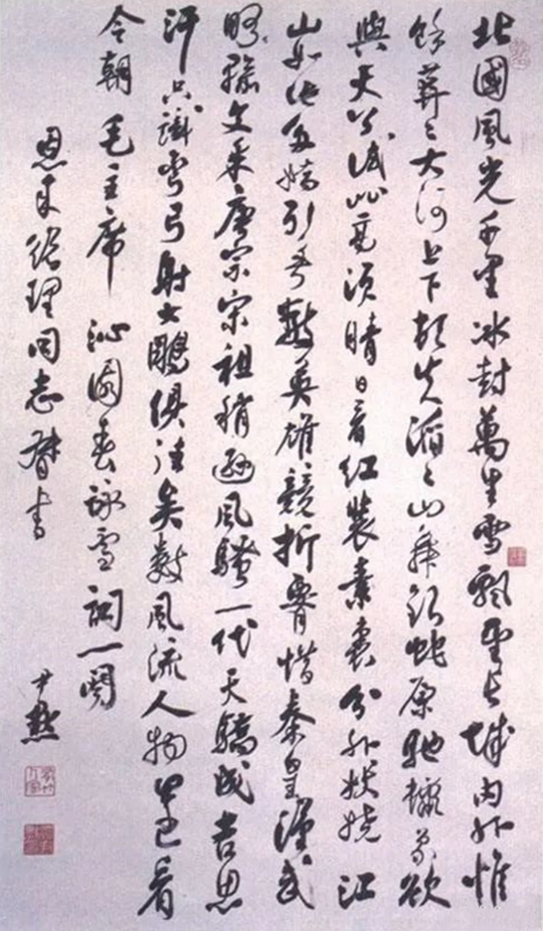 北國風光千里冰封萬里雪飄望長城內外惟
餘莽々大河上下頓失滔々山舞銀蛇原馳蠟象欲
與天公試比高須晴日看紅裝素裹分外妖嬈江
山如此多嬌引無數英雄競折腰惜秦皇漢武
略輸文采唐宗宋祖稍遜風騷一代天驕成吉思
汗只識彎弓射大鵰俱往矣數風流人物還看
今朝 毛主席 沁園春詠雪詞一闋
恩來總理同志督書
尹默